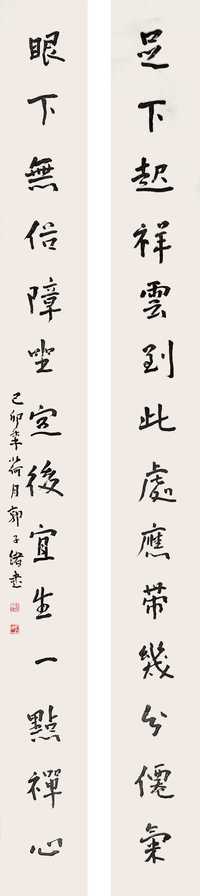 足下起祥雲到此處應帶幾分僊氣
眼下無俗障坐定後宜生一點禪心
己卯年荷月郭子緒書